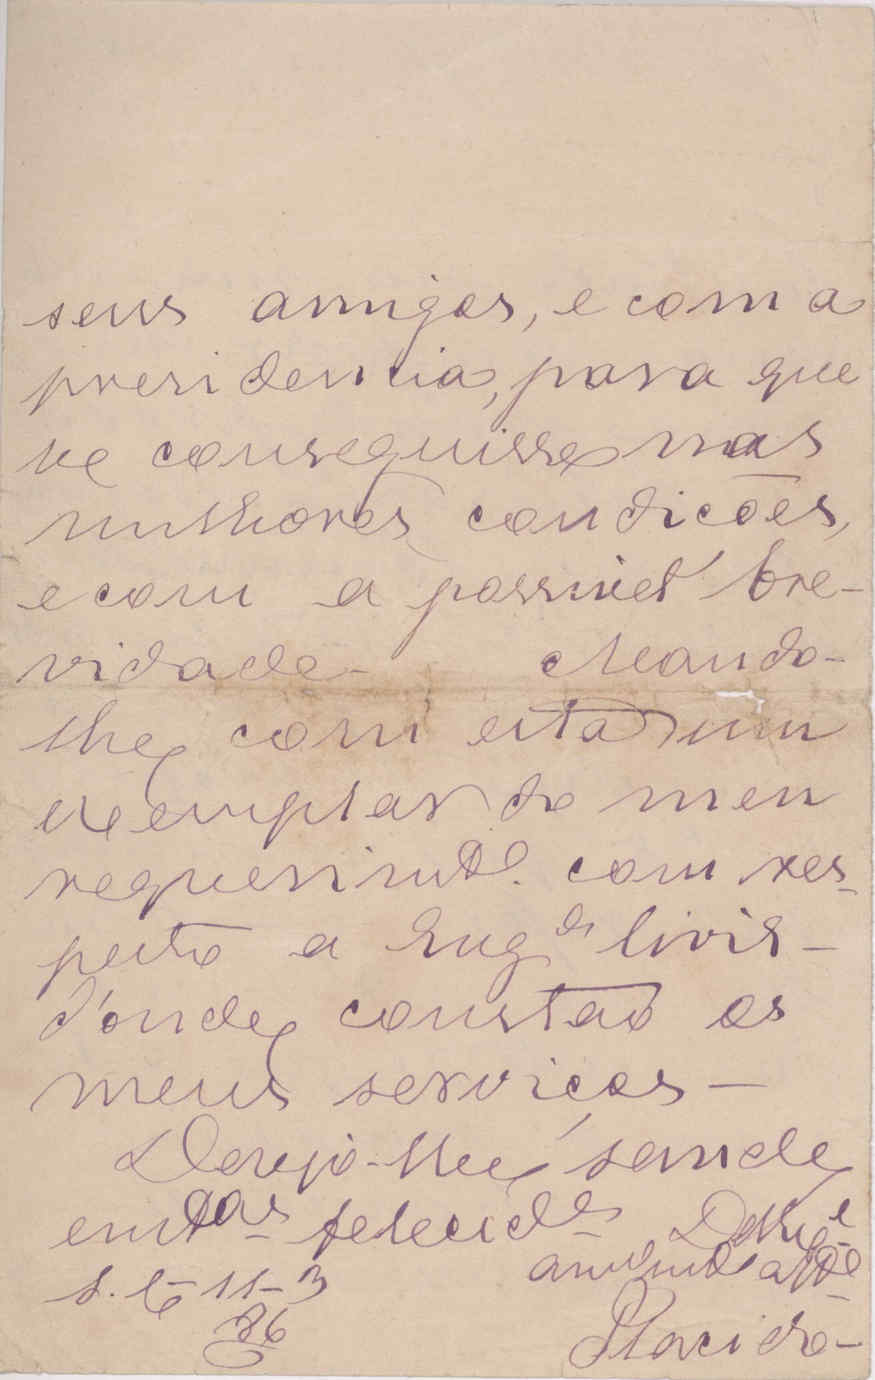 seus amigos, e com a
presidencia, para que
se conseguisse nas
milhores condicões,
e com a possivel bre-
vidade - Mando-
lhe com esta um
exemplar do meu
requerimto. com res-
peito a Engos
d'onde constão os
meus serviços -
Desejo-lhe saude
emtas felecides De VEe
amo mto
S. C 11-3
86
Placido-